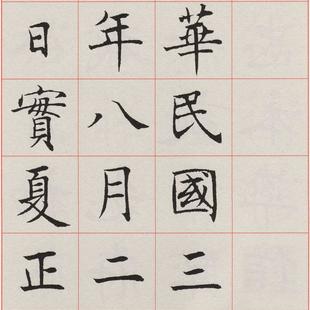 華民國三
年八月二
日實夏正